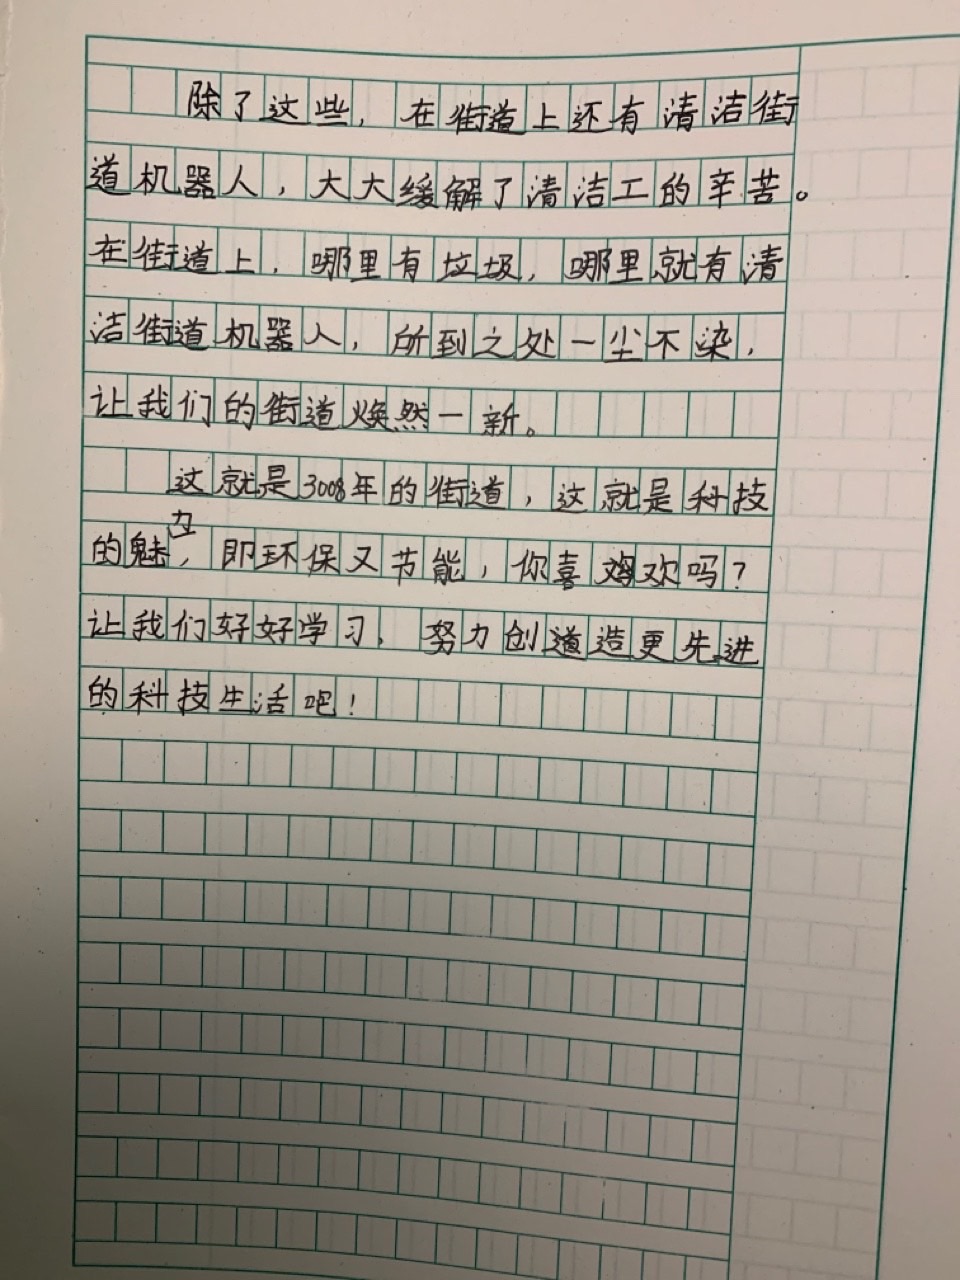 除了这些，在街道上还有清洁街
道机器人，大大缓解了清洁工的辛苦。
在街道上，哪里有垃圾，哪里就有清
洁街道机器人，所到之处一尘不染，
让我们的街道焕然一新。
这就是3008年的街道，这就是科技
的魅力，即环保又节能，你喜欢吗？
让我们好好学习，努力创造更先进
的科技生活吧！